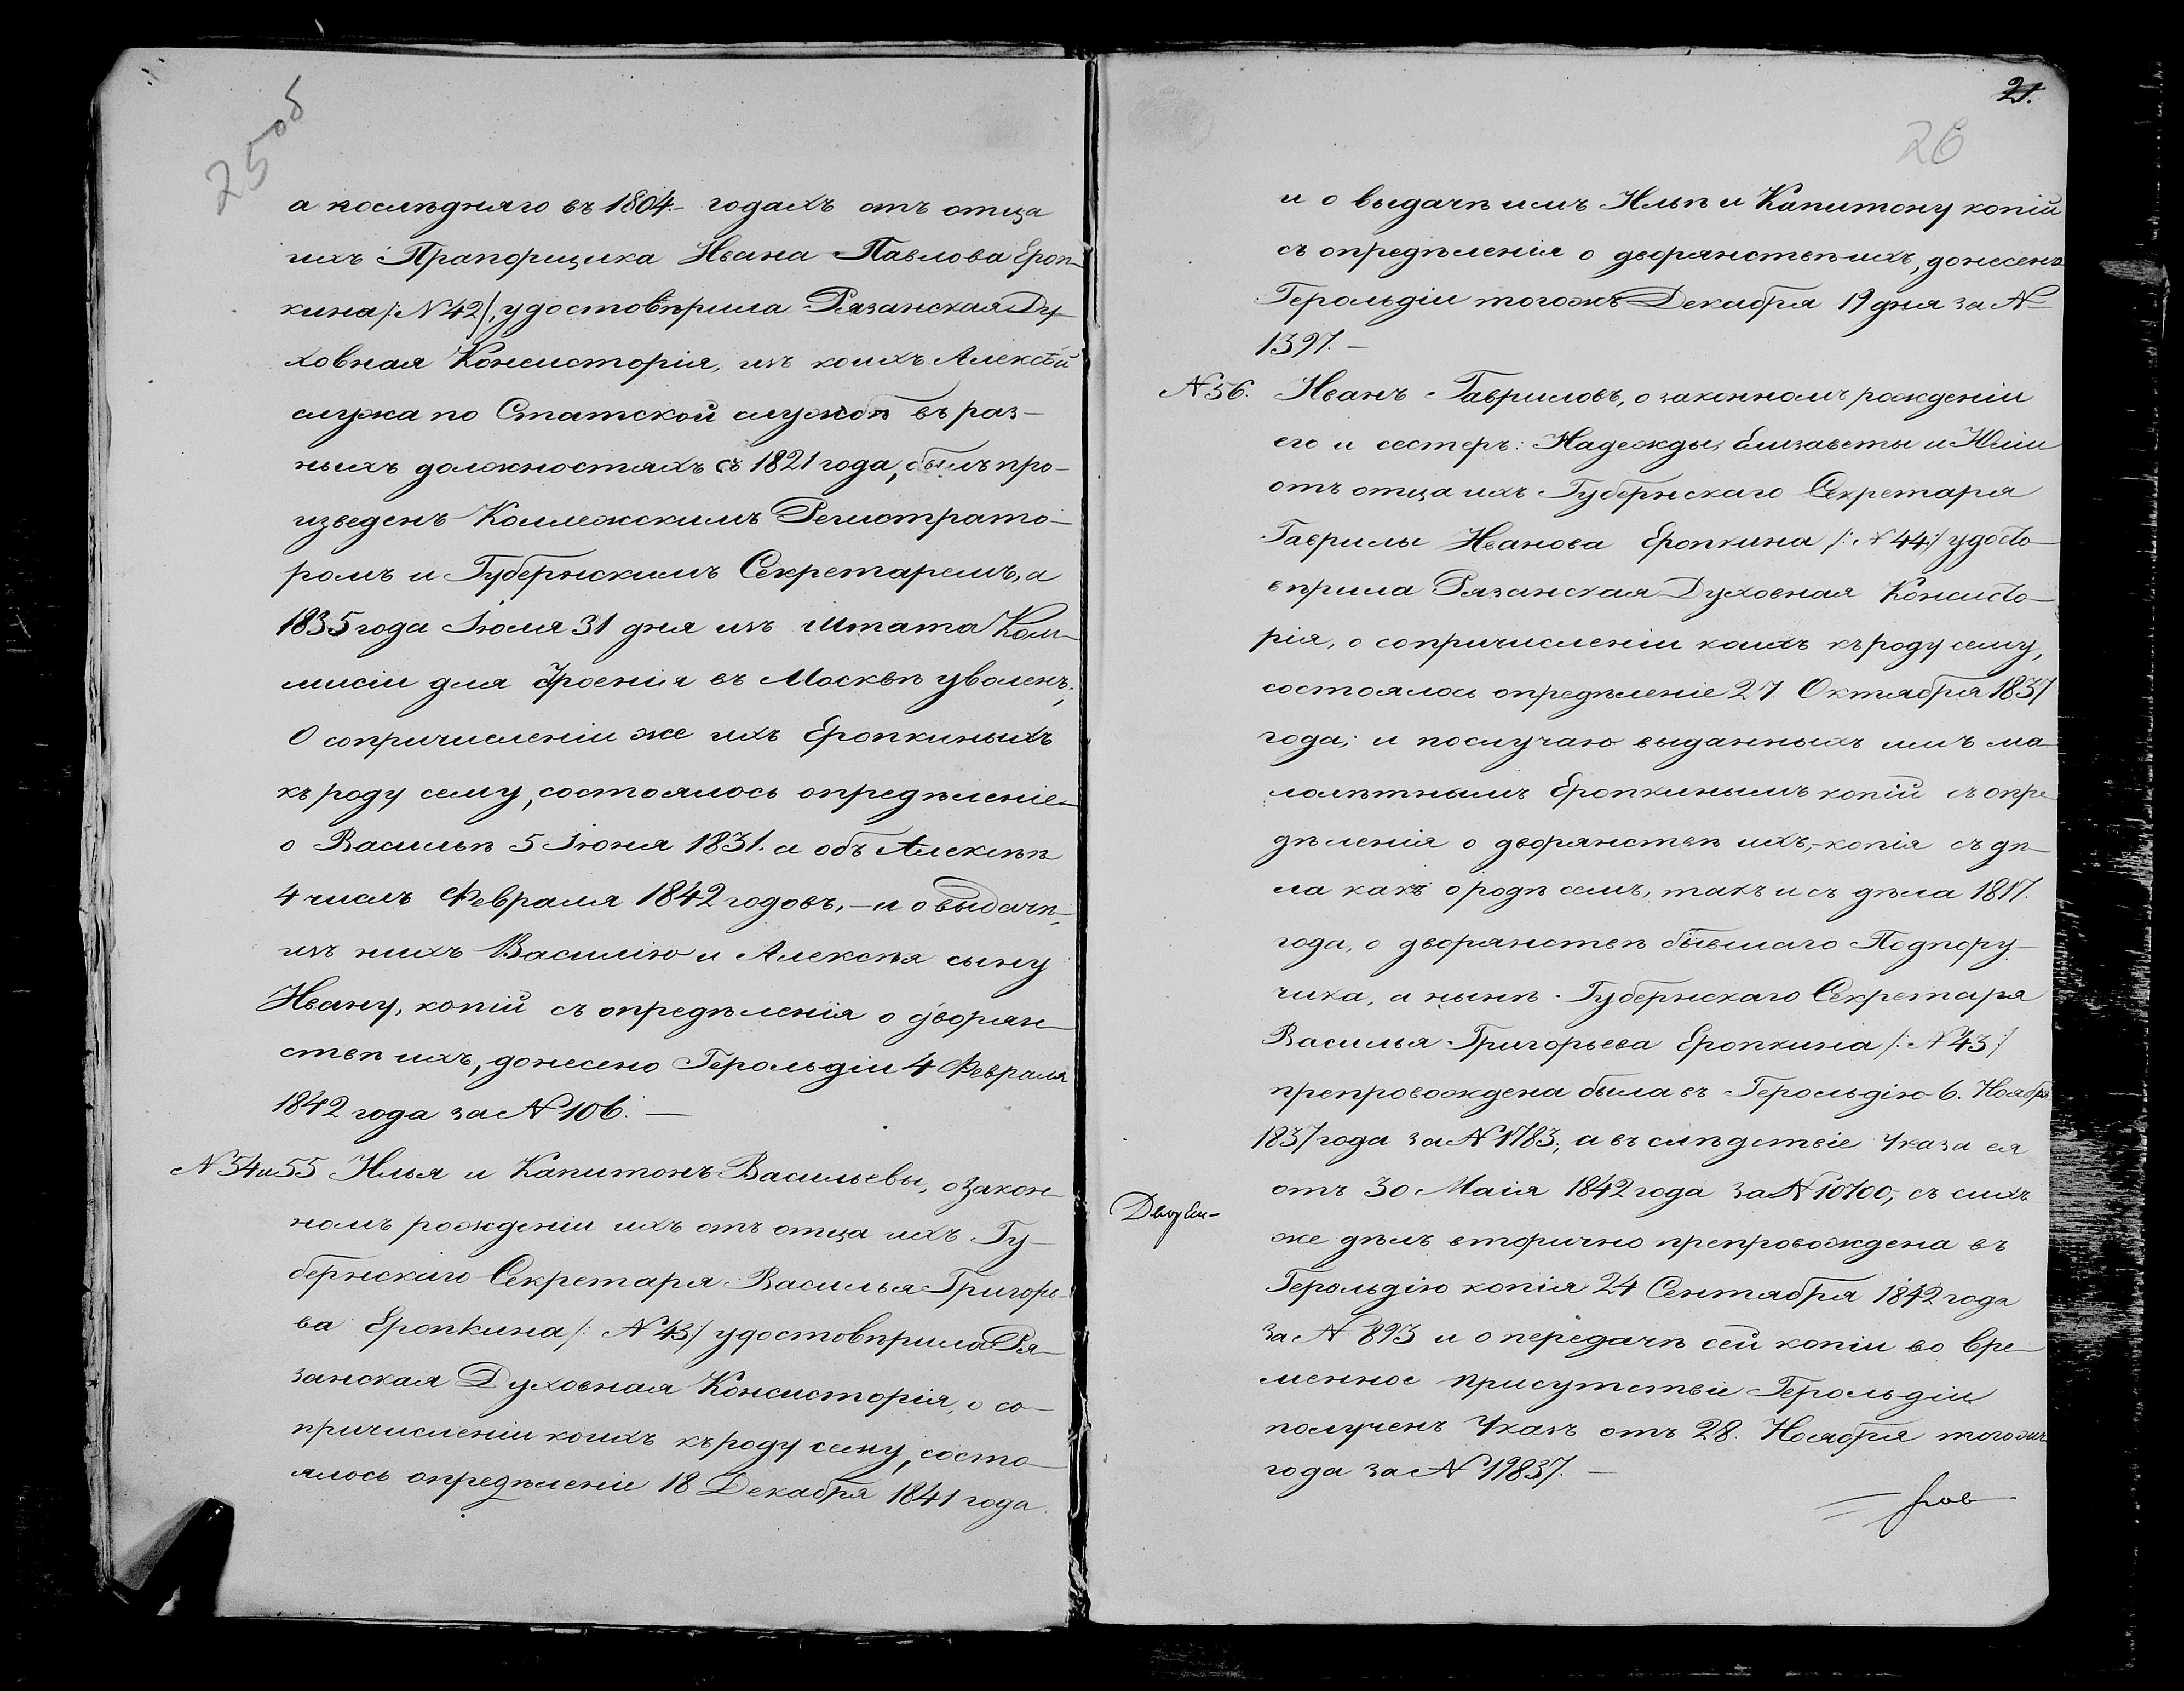 25об
а послѣдняго въ 1804.- годахъ отъ отца
ихъ Прапорщика Ивана Павлова Ероп-
кина /: N 42 /, удостовѣрила Рязанская Ду-
ховная Консисторія, изъ коихъ Алексѣй
служа по Статской службѣ въ раз-
ныхъ должностяхъ съ 1821 года, былъ про-
изведенъ Коллежскимъ Регистрато-
ромъ и Губернскимъ Секретаремъ, а
1835 года Іюля 31 дня изъ Штата Ком-
мисіи для строенія въ Москвѣ уволенъ;
О сопричисленіи же ихъ Еропкиныхъ
къ роду сему, состоялось опредѣленіе
о Васильѣ 5 Іюня 1831. а объ Алексѣѣ
4 числъ Февраля 1842 годовъ, - и о выдачѣ,
изъ нихъ Василію и Алексѣя сыну
Ивану, копій съ опредѣленія о дворян-
ствѣ ихъ, донесено Герольдіи 4 Февраля
1842 года за N 106. —
N 54 и 55 Илья и Капитонъ Васильевы, о закон-
номъ рожденіи ихъ отъ отца ихъ Гу-
бернскаго Секретаря Василья Григорь-
ва Еропкина /: N 43 / удостовѣрила Ря-
занская Духовная Консисторія, о со-
причисленіи коихъ къ роду сему, состо-
ялось опредѣленіе 18 Декабря 1841 года
21.
26
и о выдачѣ имъ Ильѣ и Капитону копій
съ опредѣленія о дворянствѣ ихъ, донесено
Герольдіи тогожъ Декабря 19 дня за N
1397. —
N 56. Иванъ Гавриловъ, о законномъ рожденіи
его и сестеръ: Надежды, Елизаветы и Юліи
отъ отца ихъ Губернскаго Секретаря
Гаврилы Иванова Еропкина /: N 44 :/ удосто-
вѣрила Рязанская Духовная Консисто-
рія, о сопричисленіи коихъ къ роду сему,
состоялось опредѣленіе 27 Октября 1837
года; и послучаю выданныхъ имъ ма-
лолѣтнымъ Еропкинымъ копій съ опре-
дѣленія о дворянствѣ ихъ, - копія съ дѣ-
ла какъ о родѣ семъ, такъ и съ дѣла 1817.
года, о дворянствѣ бывшаго Подпору-
чика, а нынѣ Губернскаго Секретаря
Василья Григорьева Еропкина /: N 43 :/
препровождена была въ Герольдію 6. Ноября
1837 года за N 1783; а въ слѣдствіе Указа ея
отъ 30 Маія 1842 года за N 10700, съ сихъ
же дѣлъ вторично препровождена въ
Герольдію копія 24 Сентября 1842 года
за N 893 и о передачѣ сей копіи во Вре-
менное присутствіе Герольдіи
полученъ Указъ отъ 28. Ноября тогожъ
года за N 19837. —